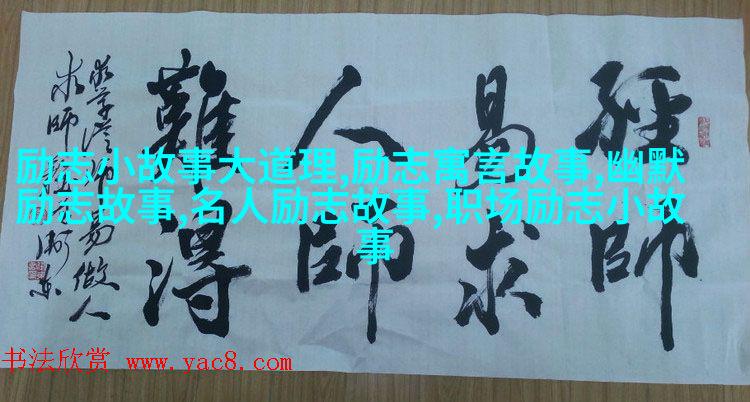 經師
易求
人師
難得
励志小故事大道理,励志寓言故事,幽默
励志故事,名人励志故事,职场励志小故
事
书法欣赏 www.yac8.com